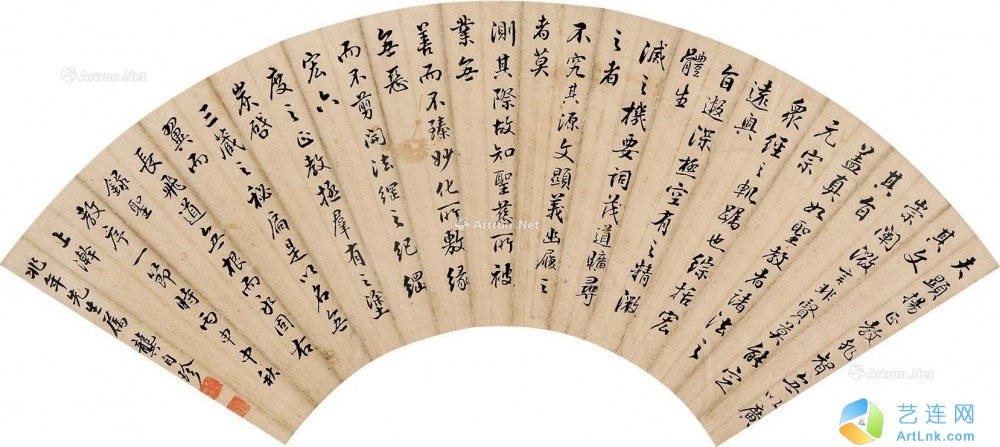 夫顯揚正教非智無以廣
其文
崇闡微言非賢莫能定
其旨
蓋真如聖教者諸法之
元宗
衆經之軌躅也綜括宏
遠奧
旨遐深極空有之精微
體生
滅之機要詞茂道曠尋
之者
不究其源文顯義幽履之
者莫
測其際故知聖慈所被
業無
善而不臻妙化所敷緣
無惡
而不剪開法網之紀綱
宏六
度之正教拯羣有之塗
炭啓
三藏之秘扃是以名無
翼而
長飛道無根而永固右
錄聖
教序一節時丙申中秋
上澣
兆年先生屬 龔自珍
Artron.Net
Artron.Net
Artron.Net
艺连网
ArtLnk.com